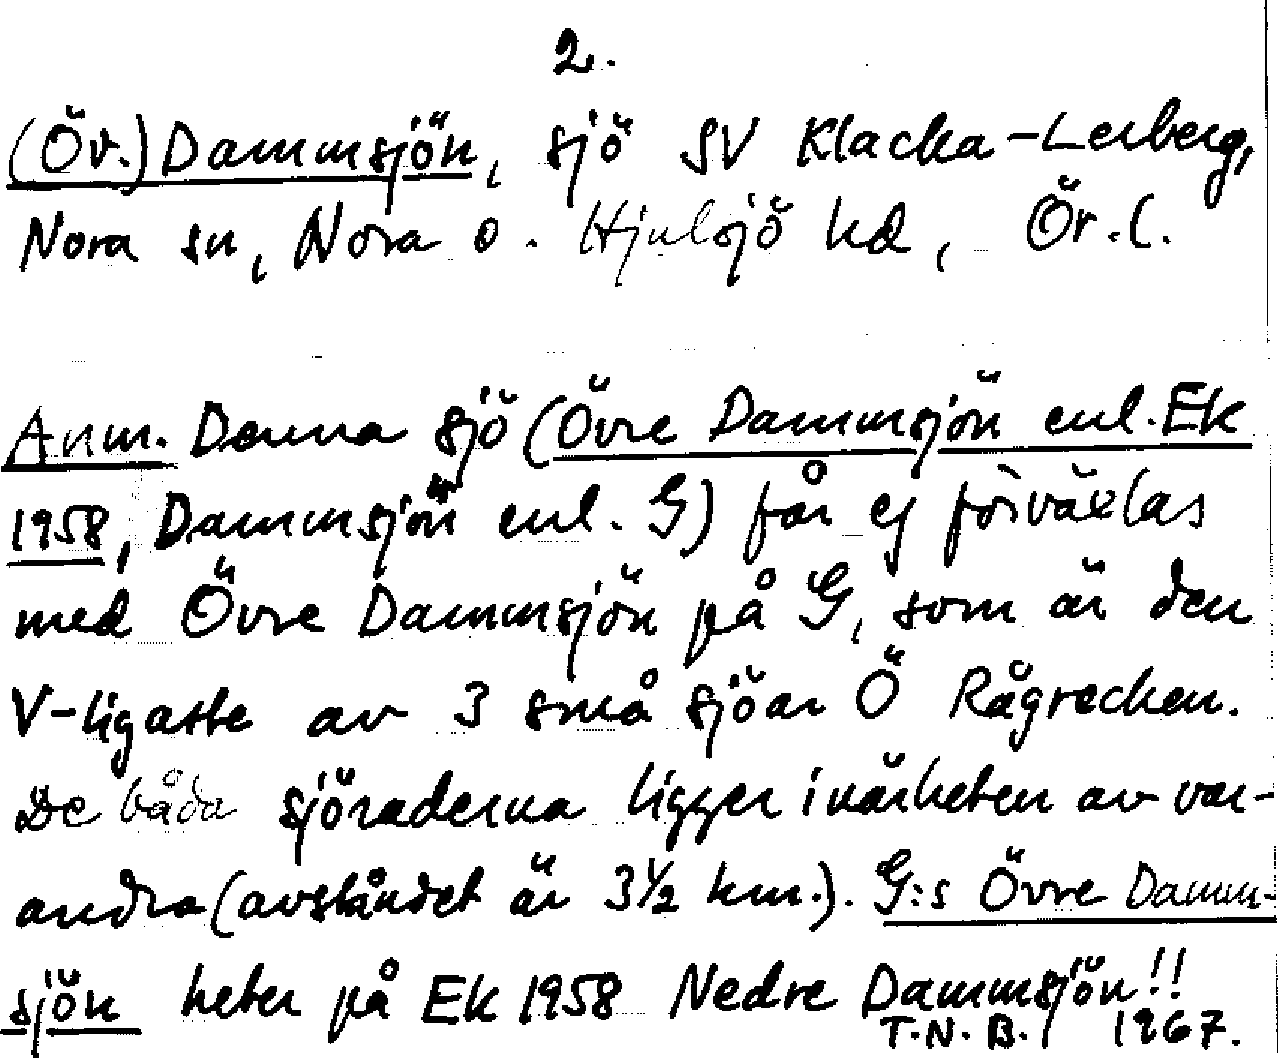 2.
(Öv.) Dammsjön, sjö SV Klacka-Lerberg,
Nora sn, Nora o. Hjulsjö hd, Ör.l.
Anm. Denna sjö (Övre Dammsjön enl. Ek
1958, Dammsjön enl. G) får ej förväxlas
med Övre Dammsjön på G, som är den
V-ligaste av 3 små sjöar Ö Rågrecken.
De båda sjöraderna ligger i närheten av var-
andra (avståndet är 3½ km.). G:s Övre Damm-
sjön heter på EK 1958 Nedre Dammsjön!!
T.N.B. 1967.